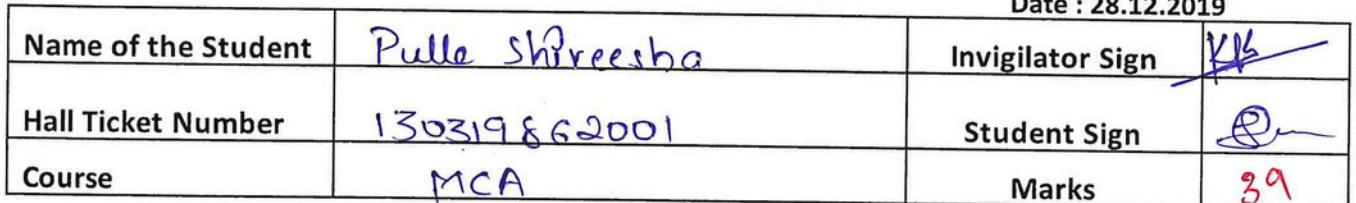 Date : 28.12.2019
Name of the Student Pulle Shireesha Invigilator Sign
Hall Ticket Number 130319862001 Student Sign
Course MCA Marks 39